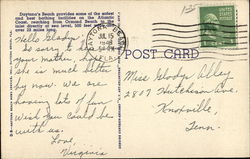 Daytona's Beach provides some of the safest
and best bathing facilities on the Atlantic
Coast, reaching from Ormond Beach to the
inlet directly at sea level, 500 feet wide and
over 23 miles long.
Hello Gladys
So sorry to hear
your mother, hope
she is much better
by now. We are
having lots of fun
Wish you could be
with us.
Love,
Virginia
DAYTONA BEACH
JUL 15
1948
FLA.
POST CARD
Miss Gladys Alley
2807 Hutcheson Ave.
Knoxville,
Tenn.